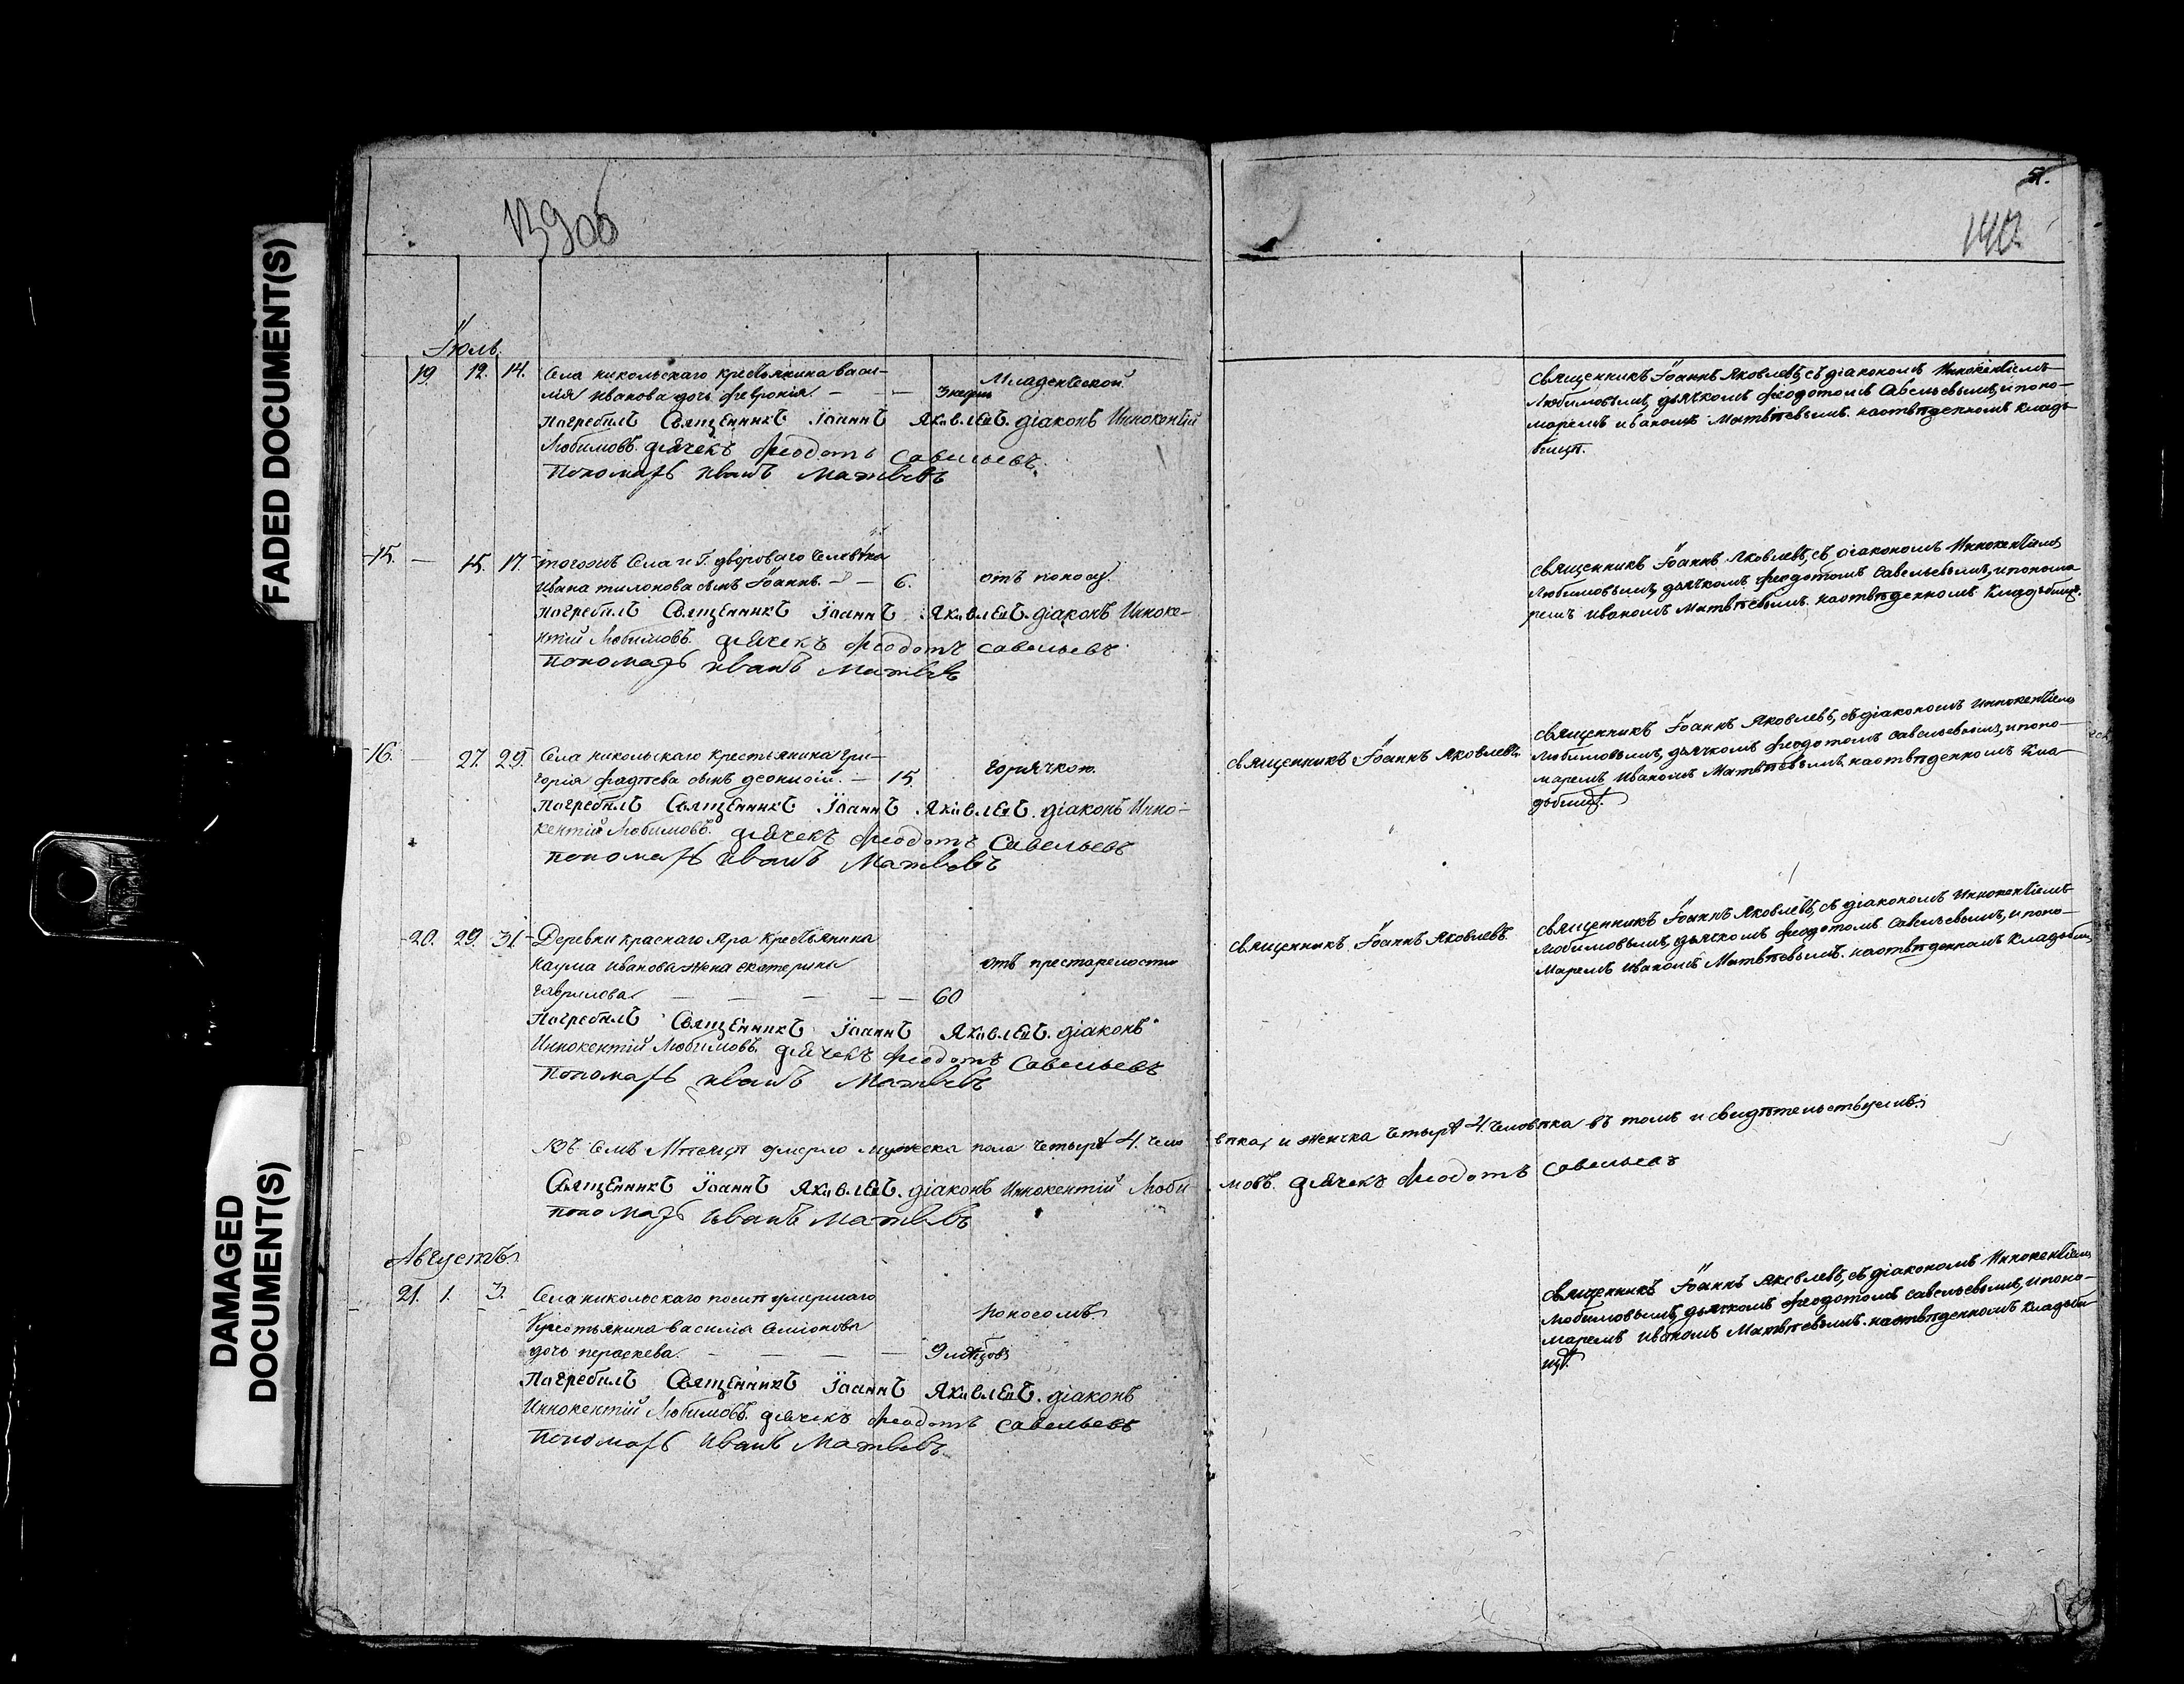 FADED DOCUMENT(S)
DAMAGED
DOCUMENT(S)
139об
51.
140.
Іюль.
19. 12. 14. Села никольскаго крестьянина васи-
лія иванова дочь февронія. — — — 3 недѣли Младенческой.
погребалъ Священникъ Іоаннъ Яковлевъ. діаконъ Иннокентій
Любимовъ. дьячекъ Феодотъ Савельевъ.
Пономарь иванъ Матвѣевъ
священникъ Іоаннъ Яковлевъ, съ діакономъ Иннокентіемъ
Любимовымъ, дьячкомъ феодотомъ Савельевымъ, и поно-
маремъ иваномъ Матвѣевымъ. на отвѣденномъ кладъ
бищѣ.
15. — 15. 17. тогожъ Села и Г. двороваго человѣка
Ивана сынъ Іоаннъ. — — 6. отъ поносу.
погребалъ Священникъ Іоаннъ Яковлевъ. діаконъ Инноке-
нтій Любимовъ. дьячекъ Феодотъ Савельевъ
Пономарь иванъ Матвѣевъ
священникъ Іоаннъ Яковлевъ, съ діакономъ Иннокентіемъ
Любимовымъ, дьячкомъ феодотомъ Савельевымъ, и понома
ремъ иваномъ Матвѣевымъ. на отвѣденномъ Кладъбищѣ.
16. — 27. 29. Села никольскаго крестьянина гри-
горія фадѣева сынъ деонисій. — 15. горячкою.
погребалъ Священникъ Іоаннъ Яковлевъ. діаконъ Инно-
кентій Любимовъ. дьячекъ Феодотъ Савельевъ
пономарь иванъ Матвѣевъ
священникъ Іоаннъ Яковлевъ.
священникъ Іоаннъ Яковлевъ, съ діакономъ Иннокентіемъ
Любимовымъ, дьячкомъ феодотомъ Савельевымъ, и поно-
маремъ Иваномъ Матвѣевымъ, на отвѣденномъ Кла
дбищѣ.
20. 29. 31. Деревни краснаго Яра крестьянина
наума иванова жена екатерина отъ престарелости
гаврилова. — — — — — 60
погребалъ Священникъ Іоаннъ Яковлевъ. діаконъ
Иннокентій Любимовъ. дьячекъ Феодотъ Савельевъ
Пономарь иванъ Матвѣевъ
священникъ Іоаннъ Яковлевъ.
священникъ Іоаннъ Яковлевъ, съ діакономъ Иннокентіемъ
Любимовымъ, дьячкомъ феодотомъ Савельевымъ, и поно-
маремъ иваномъ Матвѣевымъ. на отвѣденномъ Кладъби
Въ Семъ Мѣсецѣ умерло мужеска пола четыре 4. чело вѣка, и женска четыре 4. человѣка въ томъ и свидѣтельствуемъ.
Священникъ Іоаннъ Яковлевъ. діаконъ Иннокентій Люби- мовъ. дьячекъ Феодотъ Савельевъ
пономарь иванъ Матвѣевъ
Августъ.
21. 1. 3. Села никольскаго послѣ умершаго
крестьянина василія Семіонова поносомъ.
дочь пераскева. — — — — 9 мѣсецовъ
погребалъ Священникъ Іоаннъ Яковлевъ. діаконъ
Иннокентій Любимовъ. дьячекъ Феодотъ Савельевъ
Пономарь иванъ Матвѣевъ.
священникъ Іоаннъ Яковлевъ, съ діакономъ Иннокентіемъ
Любимовымъ, дьячкомъ феодотомъ Савельевымъ, и поно-
маремъ иваномъ Матвѣевымъ. на отвѣденномъ Кладъби
щѣ.